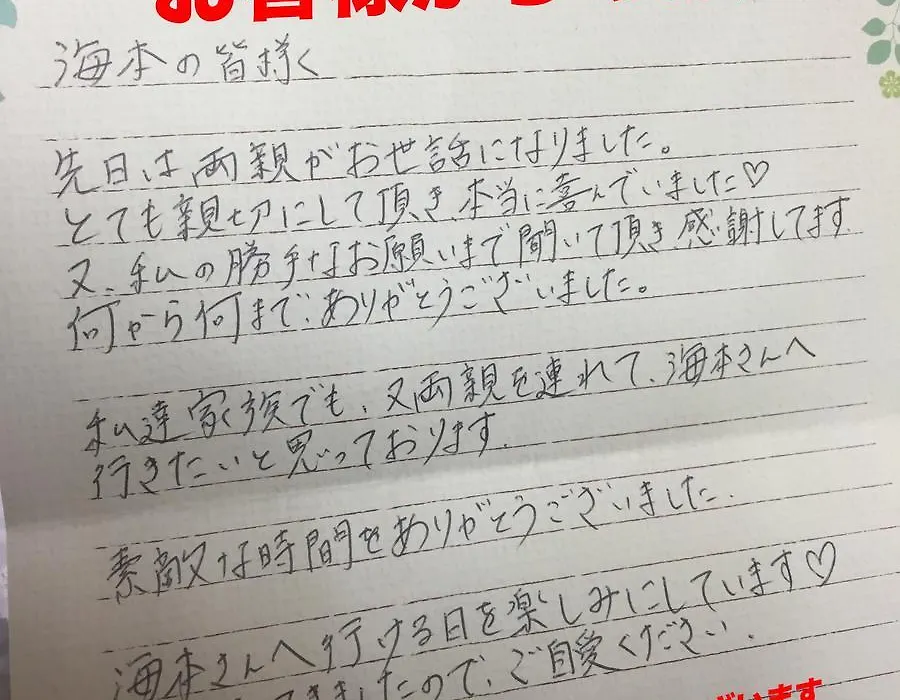 お客様から
海本の皆様へ
先日は両親がお世話になりました。
とても親切にして頂き、本当に喜んでいました♡
又、私の勝手なお願いまで聞いて頂き感謝してます
何から何まで、ありがとうございました。
私達家族でも、又両親を連れて、海本さんへ
行きたいと思っております。
素敵な時間をありがとうございました。
海本さんへ行ける日を楽しみにしています♡
きましたので、ご自愛ください。
ざいます